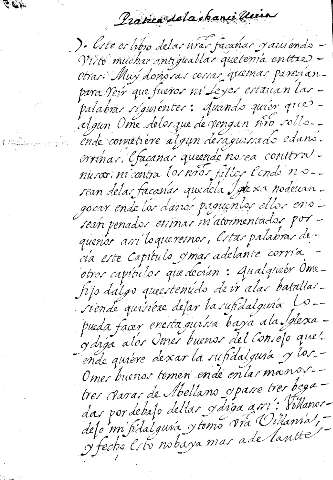 Pratica de la chanci lleria
). Este es libro de las uras façañas y auiendo
Visto muchas antiguallas que tenia entre
otras Muy donosas cosas que mas parecian
para reir que fueros ni Leyes estauan las
palabras siguientes: quando quier que
algun Ome de los que devengan sueldo
ende cometiere algun desaguissado en dano
orruinas. Efaçañas que ende no sea contral
nuestros ni contra los nros filles Eendo no
sean de las façañas que de la Iglexa no devan
gocar ende los danos paguenlos ellos e no
sean penados en simas ni atormentados por
que nos asi lo queremos, Estas palabras de
cia este Capitulo y mas adelante corria
otros capitulos que decian: Qualquier Ome
fijo dalgo que estenudo de ir a las batallas
siende quisiere dejar la su fidalguia Lo
pueda facer en esta guissa baya a la Iglexa
y diga a los Omes buenos del Consejo que
ende quiere dexar la su fidalguia y los
Omes buenos temen ende en las manos
tres Varas de Abellano y pase tres bega
das por debajo dellas y diga assi: Villanos
dejo mi fidalguia y tomo vra Villania,
y fecho Esto no baya mas adelantte